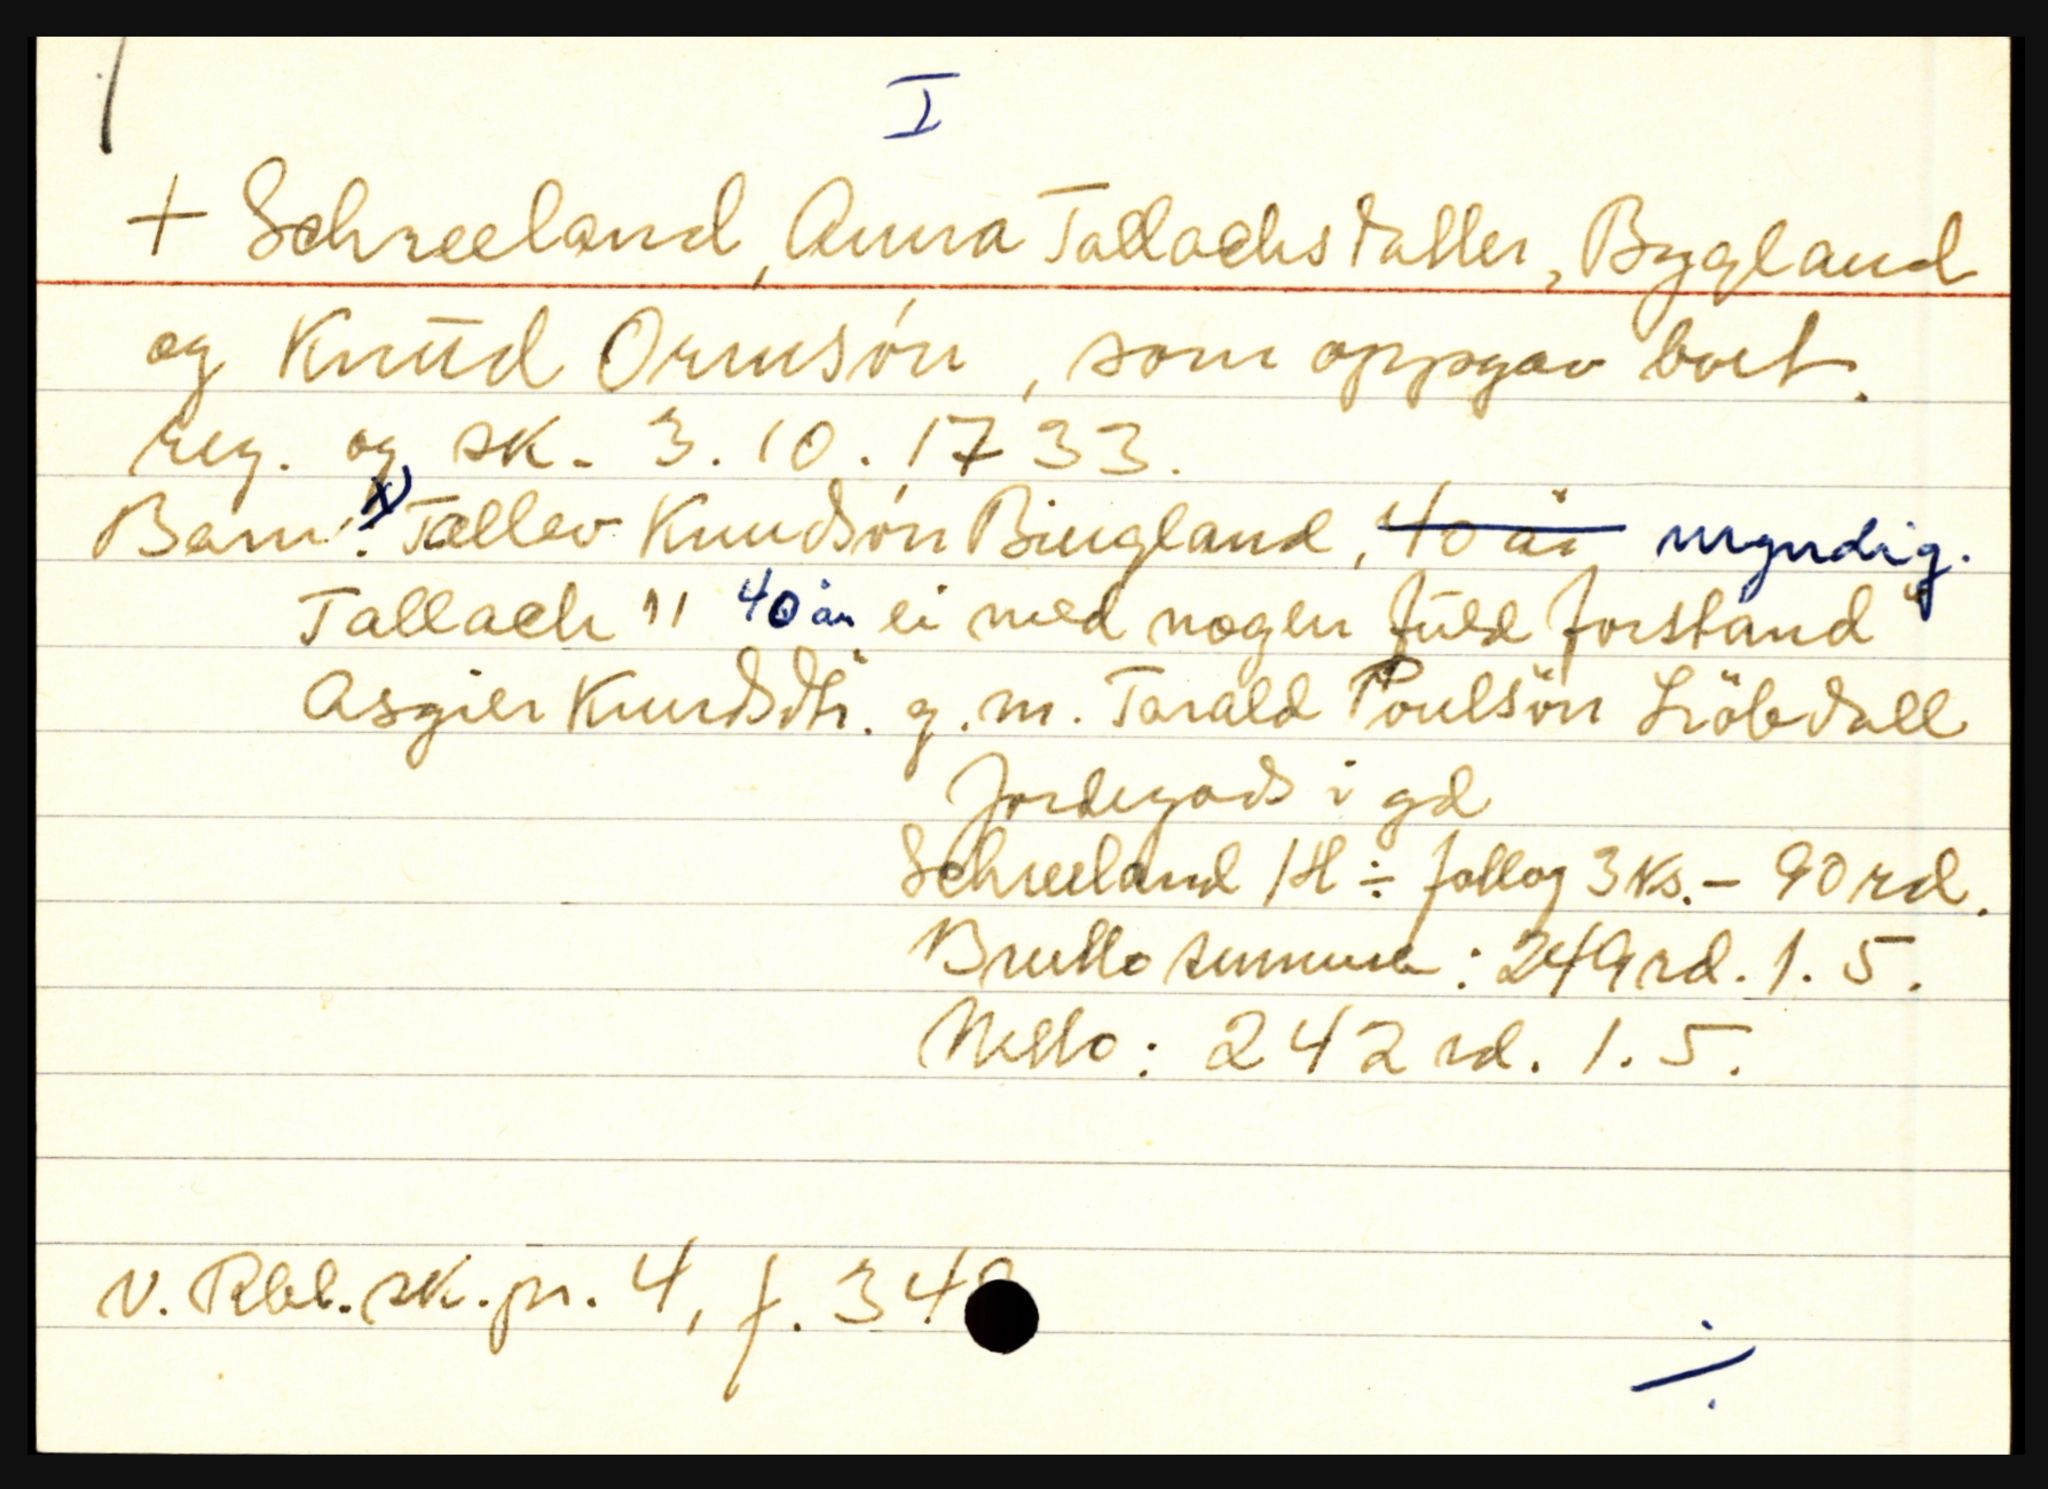 I
+ Schreeland, Anna Tallachsdatter, Bygland
og Knud Ormsón, som oppgav boet.
reg. og sk. 3.10.1733.
Barn: x) Tallev Knudsón Biugland, 40 år myndig.
Tallach " 40 år ei med nogen fuld forstand"
Asgier Knudsdtr. g.m. Tarald Poulsön Löbdall
Jordegods i gd
Schreeland 1 H ÷ follog 3 ks. – 90 rd.
Brutto summen: 249 rd. 1. 5.
Netto: 242 rd. 1. 5.
v. Rbl. sk. pr. 4, f. 34